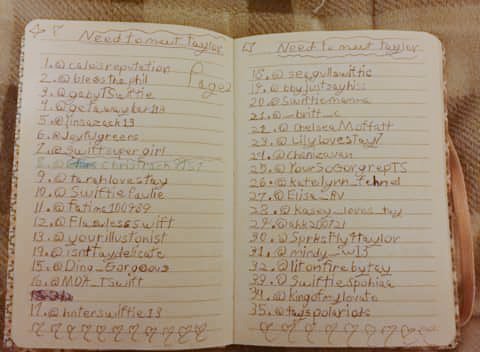 Need to meet Taylor
Page 2
1. @calasreputation
2. @blessthephil
3. @gabyTSwiftie
4. @getawaybar13
5. @linsazach13
6. @Joyfulgreens
7. @Swiftsupergirl
9. @tarahlovestay
10. @Swiftiefaulie
11. @fatime100989
12. @Flawlessswift
13. @yourillustonist
14. @isnttaydelicate
15. @Dina_Gorgeous
16. @MDA_TSwift
17. @hnterswiftie13
Need to meet Taylor
18. @seegullswiftie
19. @bbyjustsayhiss
20. @Swiftiemanma
21. @_britt_c
22. @ChelseaMoffatt
23. @Lilylovestay17
24. @Chanzawan
25. @YourSoGorgrepTS
26. @katelynn_
27. @Elisa_RV
28. @kasey_loves_tay
29. @ahk200721
30. @SprksFly4Taylor
31. @mindy_w13
32. @litonfirebytay
33. @Swiftiesophiaa
34. @kingofmylovato
35. @tayspolariods